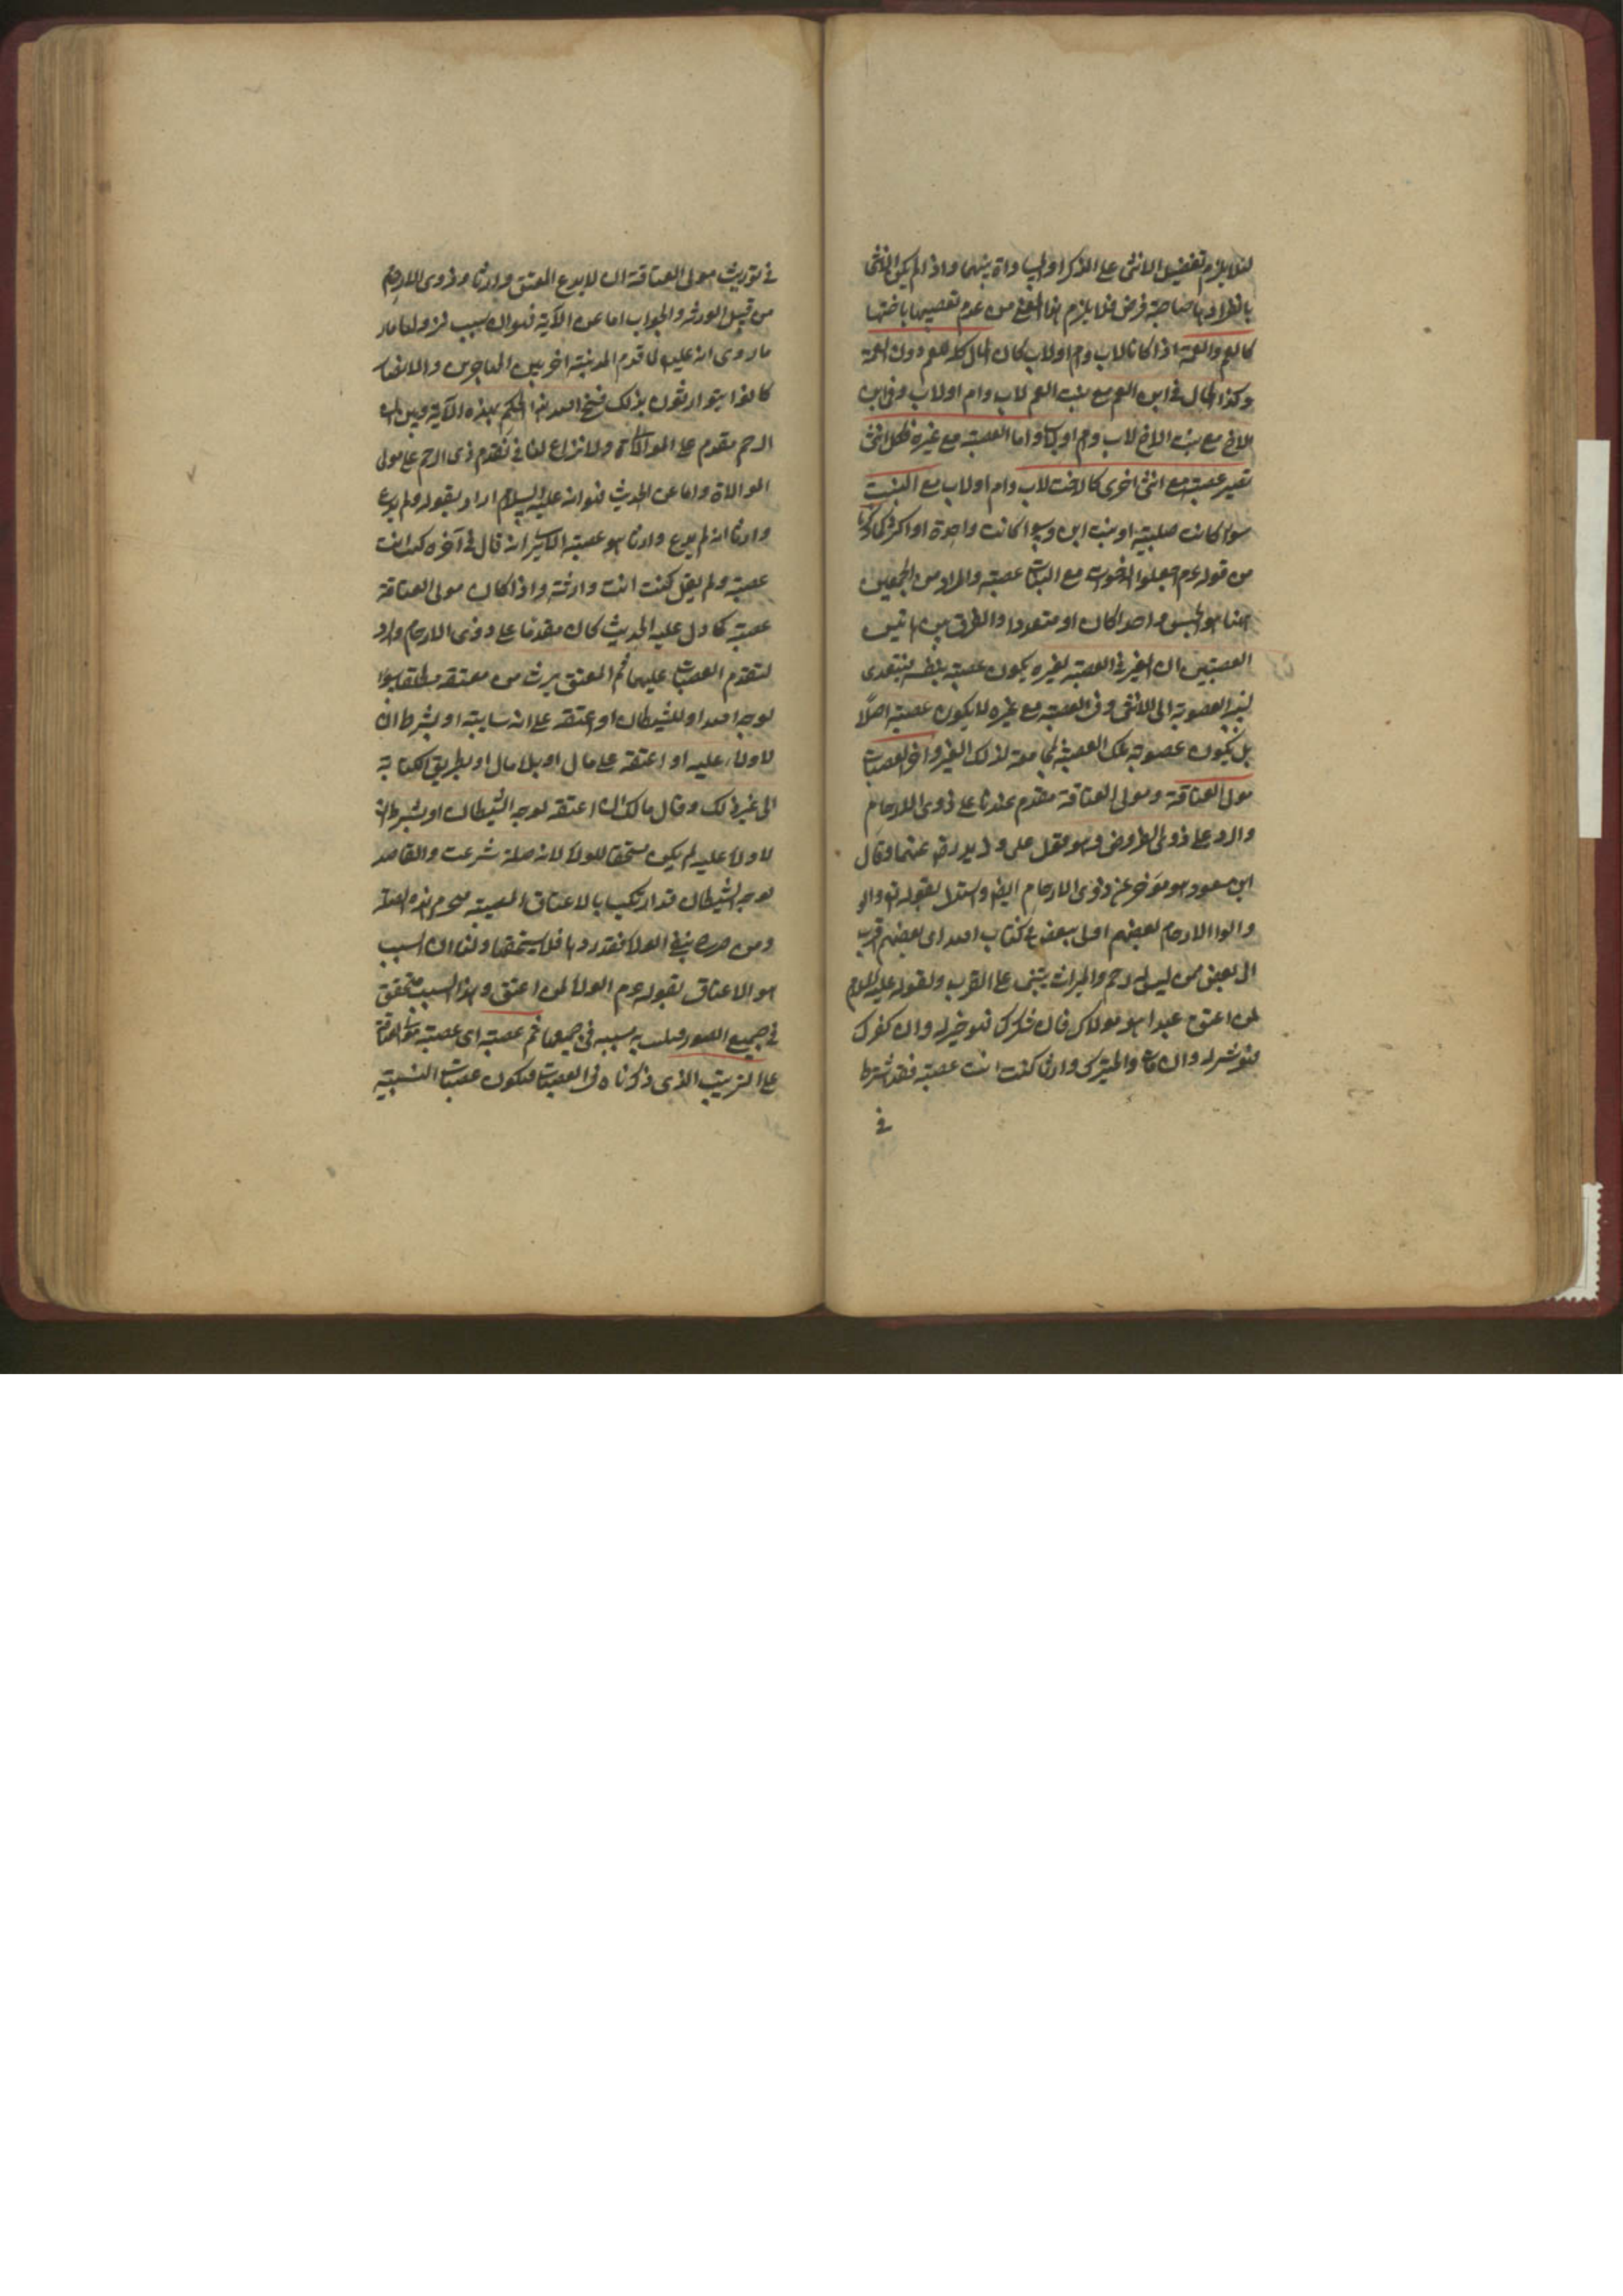 لئلا يلزم تفضيل الانثى على الذكر او المساواة بينهما واذا لم يكن الانثى
بانفرادها صاحبة فرض فلا يلزم هذا المعنى من عدم تعصيبها باخيها
كالعم والعمة اذا كانا لاب وام او لاب كان المال كله للعم دون العمة
وكذا الحال في ابن العم مع بنت العم لاب وام او لاب وفي ابن
الاخ مع بنت الاخ لاب وام او لاب واما العصبة مع غيره فكل انثى
تصير عصبة مع انثى اخرى كالاخت لاب وام او لاب مع البنت
سواء كانت صلبية او بنت ابن وسواء كانت واحدة او اكثر لما ذكرنا
من قوله عم اجعلوا الاخوات مع البنات عصبة والمراد من الجمعين
هنا هو الجنس واحدا كان او متعددا والفرق بين هاتين
العصبتين ان الغير في العصبة بغيره يكون عصبة بنفسه فيتعدى
بسببه العصوبة الى الانثى وفي العصبة مع غيره لا يكون عصبة اصلاً
بل يكون عصوبة تلك العصبة مجامعة لذلك الغير واخر العصبات
مولى العتاقة ومولى العتاقة مقدم عندنا على ذوى الارحام
والرد على ذوى الفروض وهو قول على وزيد رضى عنهما وقال
ابن مسعود هو مؤخر عن ذوى الارحام ايضا واستدل بقوله تع والو
والوا الارحام بعضهم اولى ببعض في كتاب الله اى بعضهم اقرب
الى بعض ممن ليس له رحم والميراث يبتنى على القرب ولقوله عليه السلام
لمن اعتق عبدا هو مولاك فان شكرك فهو خير له وان كفرك
فهو شر له وان مات ولم يترك وارثا كنت انت عصبته فقد شرط
في
في توريث مولى العتاقة ان لا يدع المعتق وارثا وذوى الارحام
من قبيل الورثه والجواب اما عن الآية فهو ان سبب نزولها ما ر
ما روى انه عليه لما قدم المدينة اخر بين المهاجرين والانصار
كانوا يتوارثون بذلك فنسخ الله هذا الحكم بهذه الآية وبين ان
الرحم مقدم على الموالاة ولا نزاع لنا في تقدم ذى الرحم على مولى
الموالاة واما عن الحديث فهو انه عليه السلام اراد بقوله ولم يدع
وارثا انه لم يدع وارثا هو عصبة الا يرى انه قال في آخره كنت انت
عصبته ولم يقل كنت انت وارثه واذا كان مولى العتاقة
عصبة كما دل عليه الحديث كان مقدما على ذوى الارحام والرد
لتقدم العصبات عليهما ثم المعتق يرث من معتقه مطلقا سواء
لوجه الله او للشيطان او اعتقه على انه سايبة او بشرط ان
لا ولاء عليه او اعتقه على مال او بلا مال او بطريق الكتابة
الى غير ذلك وقال مالك ان اعتقه لوجه الشيطان او بشرط ان
لا ولاء عليه لم يكن مستحقا للولاء لانه صلة شرعت والقاصد
لوجه الشيطان قد ارتكب بالاعتاق المعصية فيحرم هذه الصلة
ومن صرح بنفي الولاء فقد ردها فلا يستحقها ولنا ان السبب
هو الاعتاق لقوله عم الولاء لمن اعتق وهذا السبب متحقق
في جميع الصور فيثبت مسببه في جميعها ثم عصبته اى عصبة مولى العتاقة
على الترتيب الذى ذكرناه في العصبات فيكون عصبات النسبية